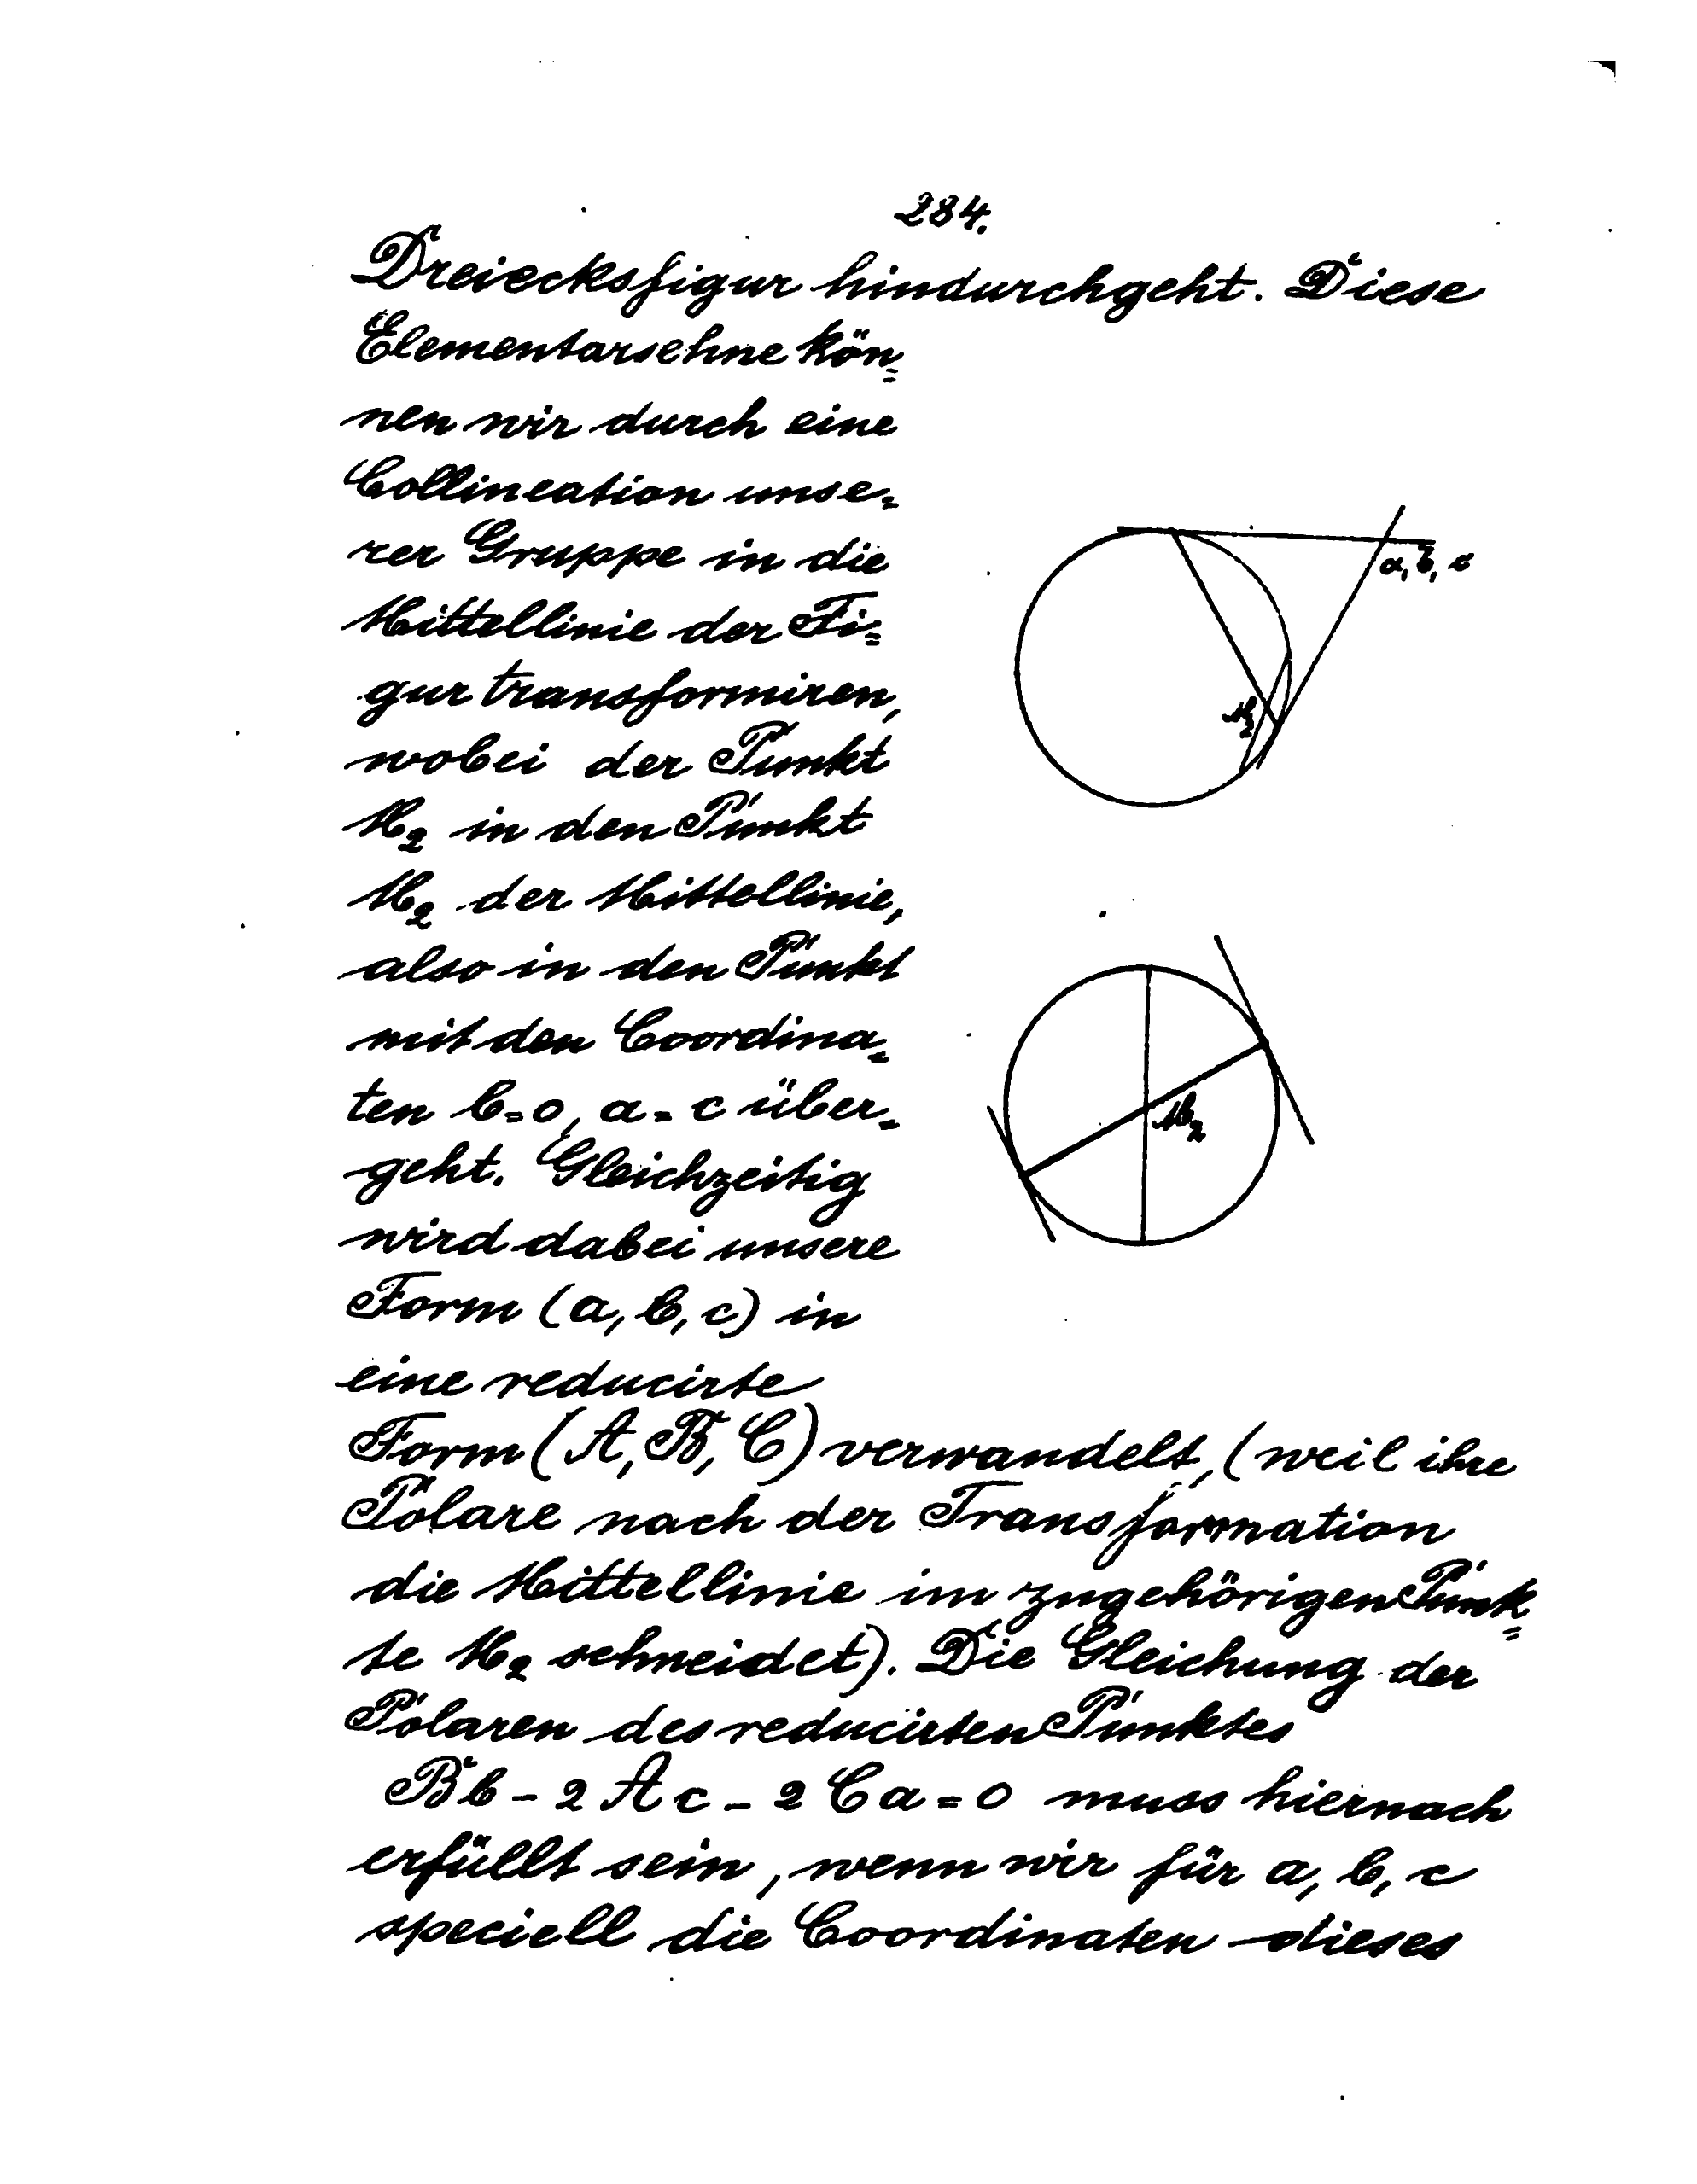 284.
Dreiecksfigur hindurchgeht. Diese
Elementarsehne kön=
nen wir durch eine
Collineation unse=
rer Gruppe in die
Mittellinie der Fi=
gur transformiren,
wobei der Punkt
M₂ in den Punkt
M₂ der Mittellinie,
also in den Punkt
mit den Coordina=
ten b=o, a=c über=
geht. Gleichzeitig
wird dabei unsere
Form (a, b, c) in
eine reducirte
a, b, c
M₂
M₂
Form (A, B, C) verwandelt, (weil ihre
Polare nach der Transformation
die Mittellinie im zugehörigen Punk=
te M₂ schneidet). Die Gleichung der
Polaren des reducirten Punktes
Bb - 2Ac - 2Ca = 0 muss hiernach
erfüllt sein, wenn wir für a, b, c
speciell die Coordinaten dieses